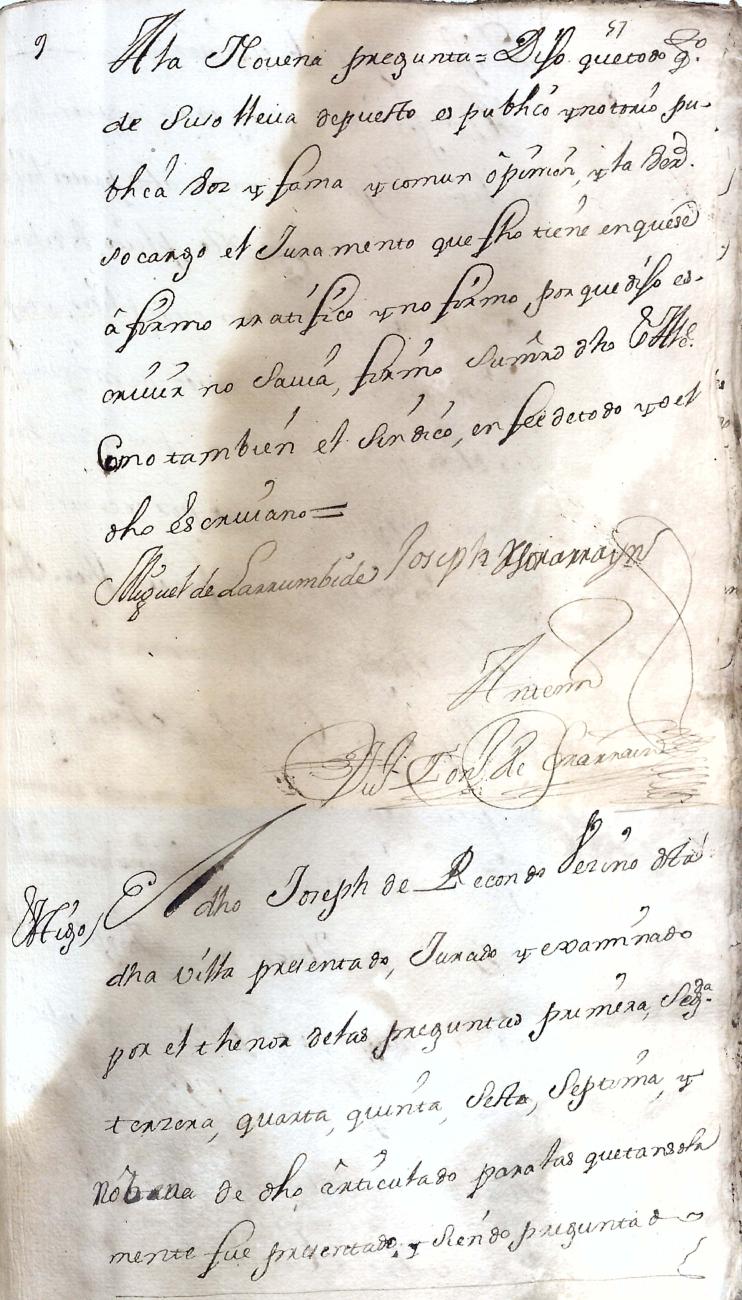 57
9 A la Novena pregunta = Dijo que todo q.º
de suso lleva depuesto es publico y notorio pu-
blica voz y fama y comun opinion, y la verd.
so cargo el Juramento que fho tiene en que se
afirmo rratifico y no firmo, porque dijo es-
crivir no savia, firmo su mrd dho Alle.
Como tambien el sindico, en fee de todo yo el
dho Escrivano =
Miguel de Larrumbide Joseph
Antemi
de
Testigo / El dho Joseph de Recondo Vezino dsta
dha villa presentado, Jurado y examinado
por el thenor de las preguntas primera, Seg.da
terzera, quarta, quinta, Sesta, Septima, y
nobena de dho articulado para las que tansola
mente fue presentado, y siendo preguntado